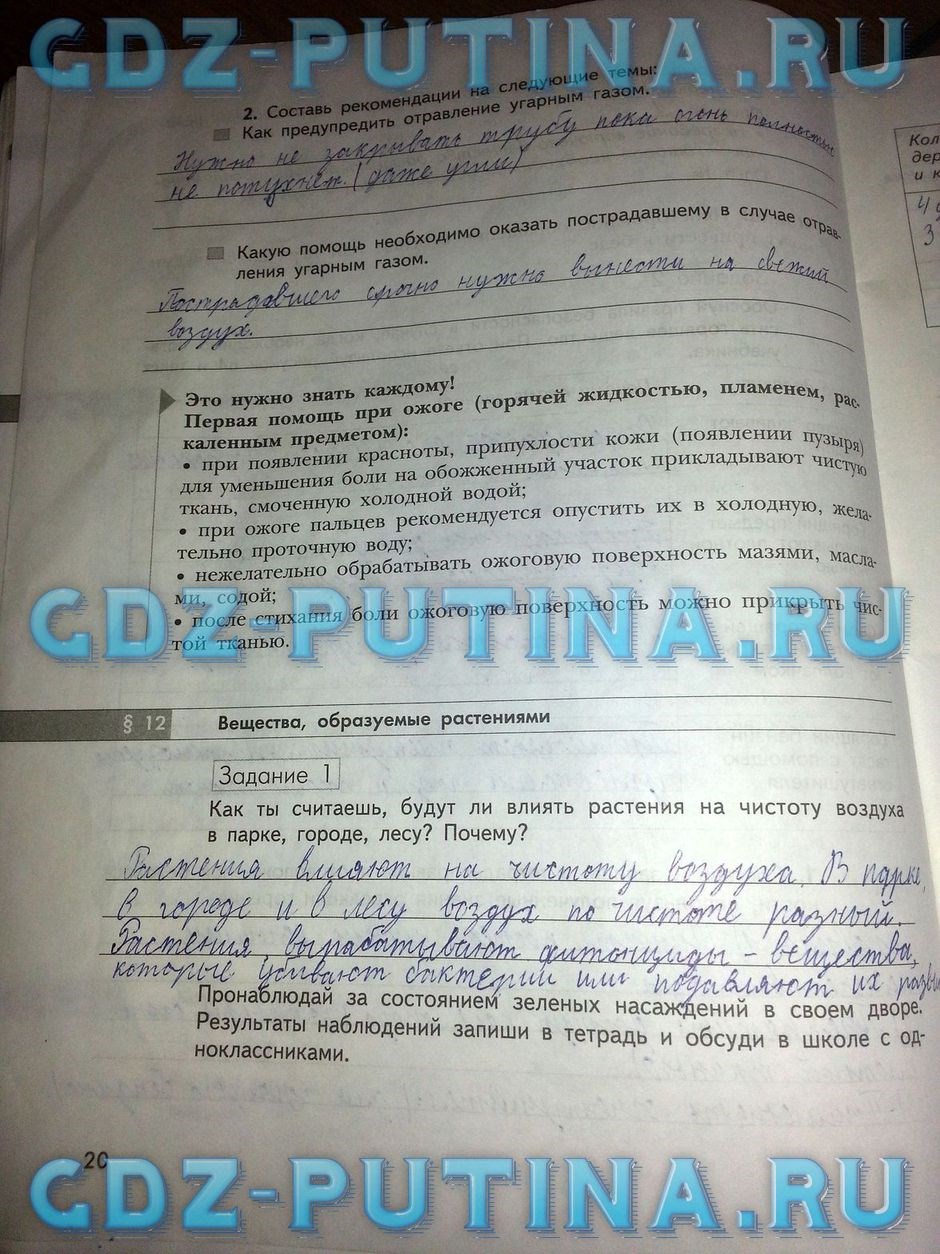 GDZ-PUTINA.RU
2. Составь рекомендации на следующие темы:
Как предупредить отравление угарным газом.
Нужно не закрывать трубу пока огонь полностью
не потухнет. (даже угли)
Какую помощь необходимо оказать пострадавшему в случае отрав-
ления угарным газом.
Пострадавшего срочно нужно вынести на свежий
воздух.
Кол
дер
и к
4
3
Это нужно знать каждому!
Первая помощь при ожоге (горячей жидкостью, пламенем, рас-
каленным предметом):
• при появлении красноты, припухлости кожи (появлении пузыря)
для уменьшения боли на обожженный участок прикладывают чистую
ткань, смоченную холодной водой;
• при ожоге пальцев рекомендуется опустить их в холодную, жела-
тельно проточную воду;
• нежелательно обрабатывать ожоговую поверхность мазями, масла-
ми, содой;
GDZ-PUTINA.RU
• после стихания боли ожоговую поверхность можно прикрыть чис-
той тканью.
§ 12 Вещества, образуемые растениями
Задание 1
Как ты считаешь, будут ли влиять растения на чистоту воздуха
в парке, городе, лесу? Почему?
Растения влияют на чистоту воздуха. В парке,
в городе и в лесу воздух по чистоте разный.
Растения вырабатывают фитонциды - вещества,
которые убивают бактерии или подавляют их разви
Пронаблюдай за состоянием зеленых насаждений в своем дворе.
Результаты наблюдений запиши в тетрадь и обсуди в школе с од-
ноклассниками.
20
GDZ-PUTINA.RU